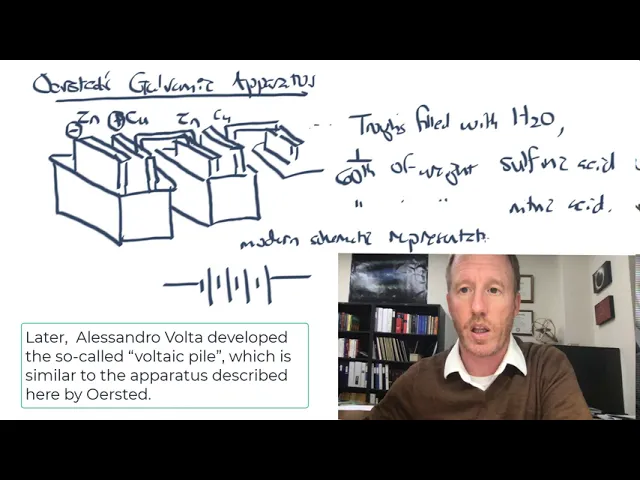 Oersted's Galvanic Apparatus
− Zn + Cu Zn Cu
Troughs filled with H2O,
1/60th of weight sulfuric acid
" " " nitric acid.
modern schematic representat
Later, Alessandro Volta developed
the so-called “voltaic pile”, which is
similar to the apparatus described
here by Oersted.